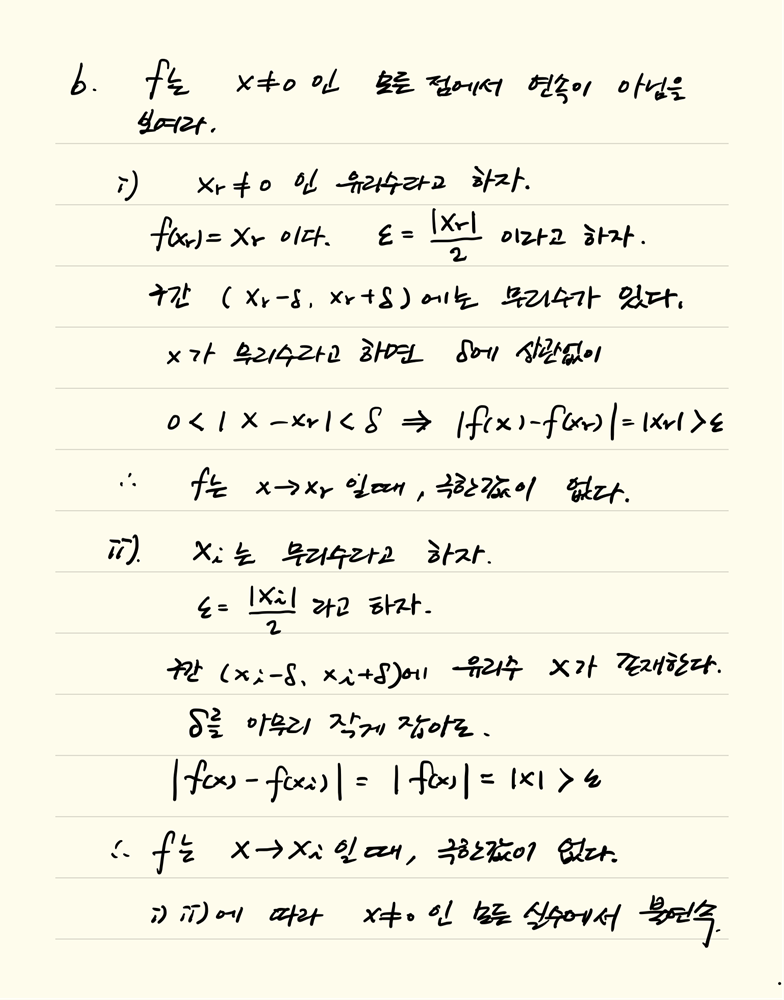 b. f는 x≠0 인 모든 점에서 연속이 아님을
보여라.
i) xr≠0 인 유리수라고 하자.
f(xr)= xr 이다. ε = |xr|/2 이라고 하자.
구간 (xr-δ, xr+δ)에는 무리수가 있다.
x가 무리수라고 하면 δ에 상관없이
0<|x-xr|<δ ⇒ |f(x)-f(xr)|=|xr|>ε
∴ f는 x→xr 일때, 극한값이 없다.
ii). xi는 무리수라고 하자.
ε= |xi|/2 라고 하자.
구간 (xi-δ, xi+δ)에 유리수 x가 존재한다.
δ를 아무리 작게 잡아도.
|f(x)-f(xi)| = |f(x)| = |x| > ε
∴ f는 x→xi 일때, 극한값이 없다.
i) ii)에 따라 x≠0 인 모든 실수에서 불연속.